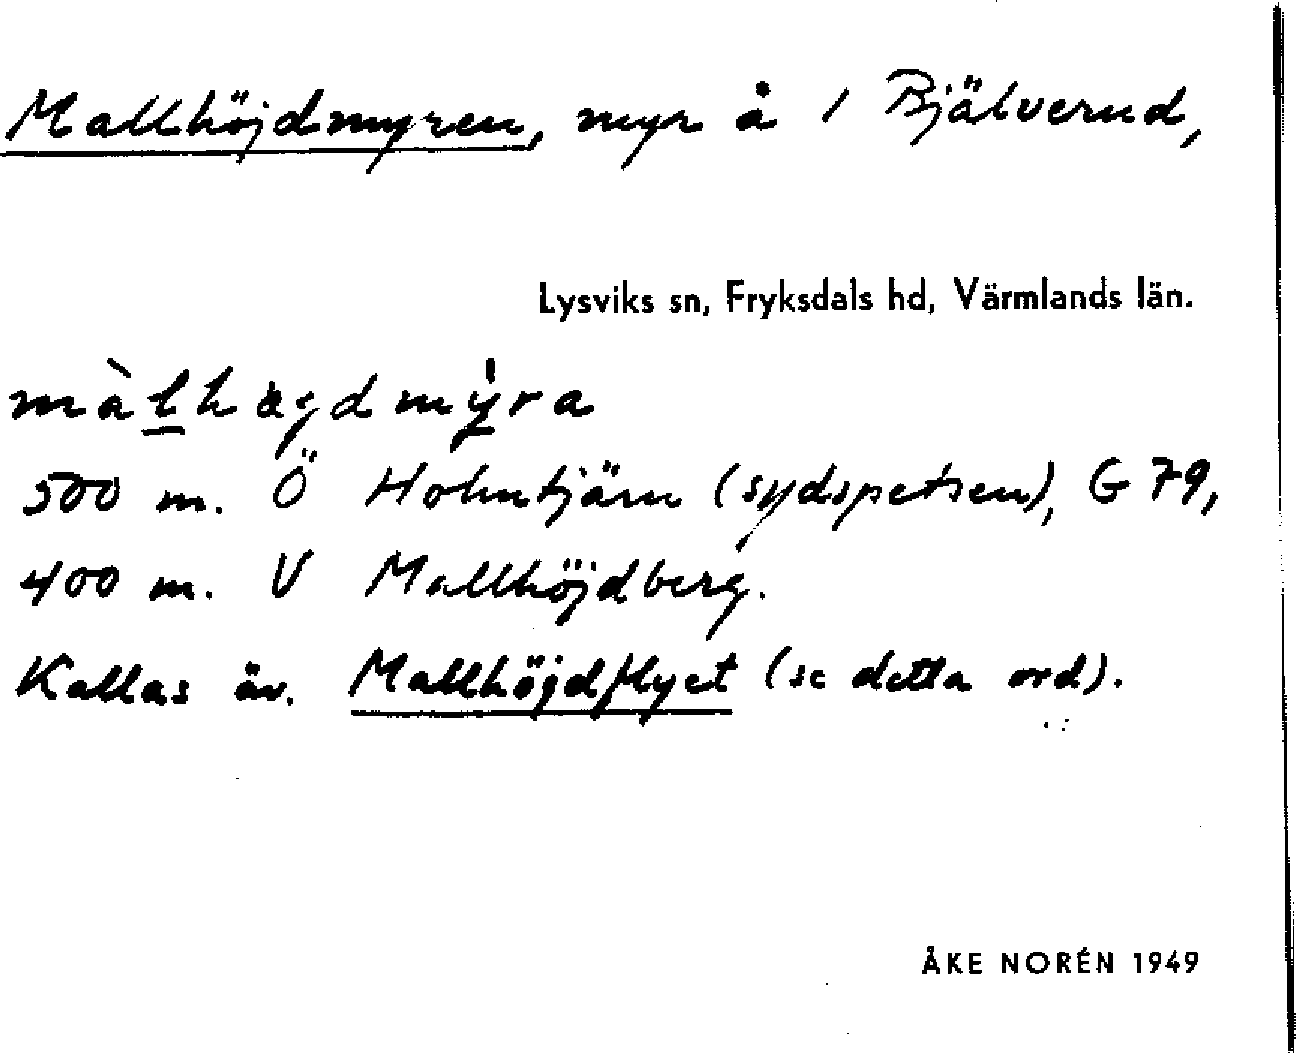 Mallhöjdmyren, myr å 1 Bjälverud,
Lysviks sn, Fryksdals hd, Värmlands län.
500 m. Ö Holmtjärn (sydspetsen), G 79,
400 m. V Mallhöjdberg.
Kallas äv. Mallhöjdflyet (se detta ord).
ÅKE NORÉN 1949